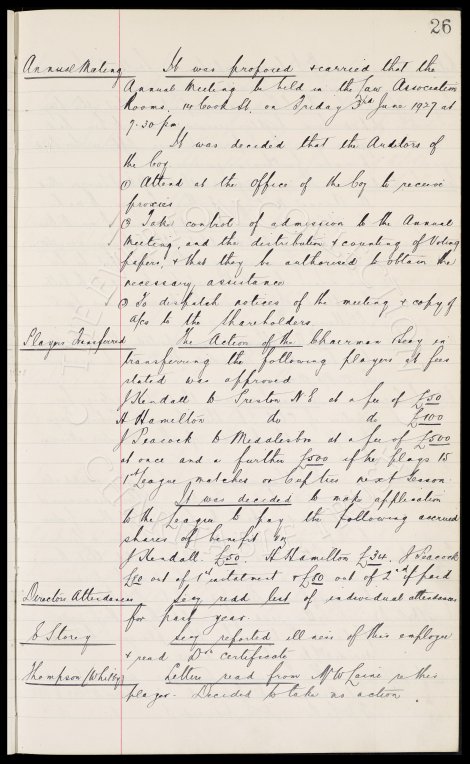 26
Annual Meeting It was proposed & carried that the
Annual Meeting be held in the Law Association
Rooms, 14 Cook St, on Friday 3rd June 1927 at
7.30 pm
It was decided that the Auditors of
the Coy
(1) Attend at the office of the Coy to receive
proxies
(2) Take control of admission to the Annual
Meeting, and the distribution & counting of Voting
papers, & that they be authorised to obtain the
necessary assistance
(3) To despatch notices of the meeting & copy of
a/cs to the Shareholders
Players Transferred The Action of the Chairman & Secy in
transferring the following players at fees
stated was approved
J Kendall to Preston N E at a fee of £50
A Hamilton do do £100
J Peacock to Middlesbro at a fee of £500
at once and a further £500 if he plays 15
1st League matches or Cup ties next Season.
It was decided to make application
to the League to pay the following accrued
shares of benefit
J Kendall £50. A Hamilton £34. J Peacock
out of 1st instalment & out of 2nd if paid
Directors Attendances Secy read list of individual attendances
for past year.
E Storey Secy reported illness of this employee
& read Drs certificate
Thompson (Whitby) Letters read from Mr W Laine re this
player. Decided to take no action